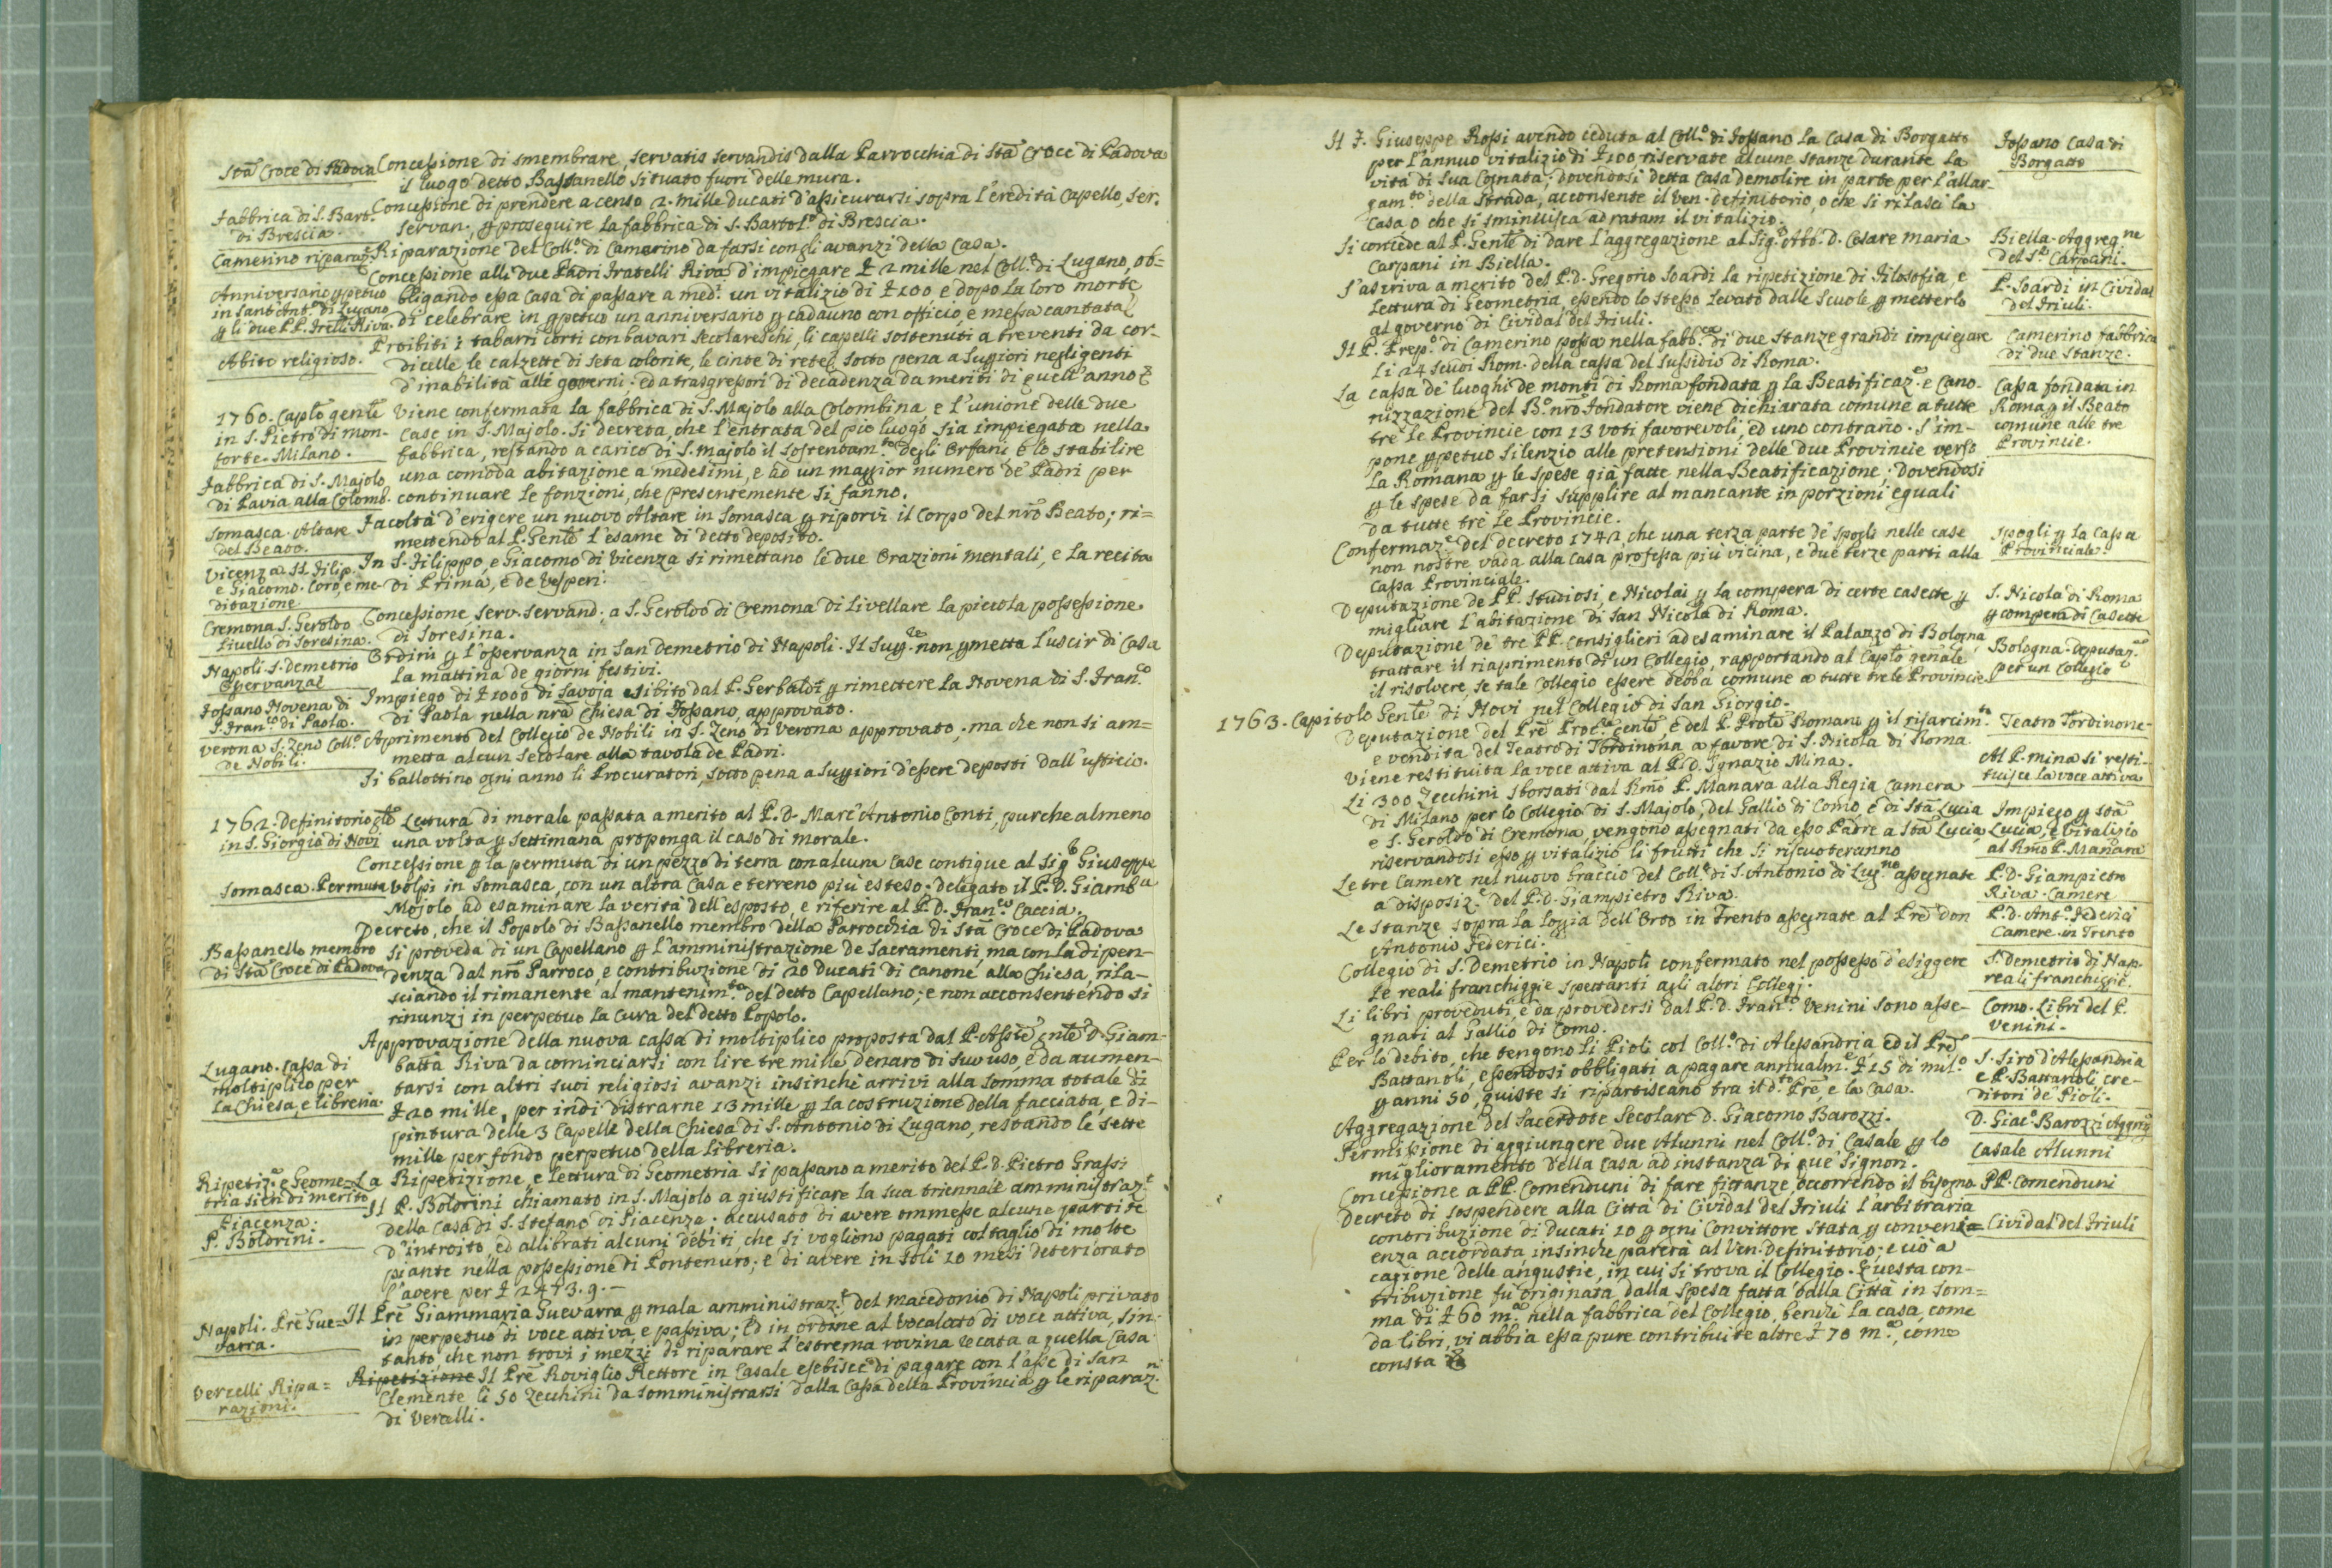 Sta Croce di Padova
Concessione di smembrare, servatis servandis dalla Parrocchia di Sta Croce di Padova
il luogo detto Bassanello situato fuori delle mura.
Fabbrica di S. Bart.
di Brescia.
Concessione di prendere a censo 2. mille ducati d'assicurarsi sopra l'eredità Capello, ser.
servan. p proseguire la fabbrica di S. Bartol.o di Brescia.
Camerino riparaz.e
Riparazione del Coll.o di Camerino da farsi con gli avanzi della Casa.
Anniversario ppetuo
in Sant'Ant.o di Lugano
p li due PP. Frelli Riva.
Concessione alli due Padri Fratelli Riva d'impiegare £ 2 mille nel Coll.o di Lugano, ob=
bligando essa Casa di passare a med.i un vitalizio di £ 100 e dopo la loro morte
di celebrare in ppetuo un anniversario p cadauno con officio, e messa cantata
Abito religioso.
Proibiti i tabarri corti con bavari secolareschi, li capelli sostenuti a tre venti da cor-
dicelle le calzette di seta colorite, le cinte di rete sotto pena a Suppiori negligenti
d'inabilità alli governi. ed a trasgressori di decadenza da meriti di quell'anno
1760. Capto gente
in S. Pietro di Mon-
forte. Milano.
Fabbrica di S. Majolo
di Pavia alla Colomb.
Viene confermata la fabbrica di S. Majolo alla Colombina, e l'unione delle due
Case in S. Majolo. Si decreta, che l'entrata del pio luogo sia impiegata nella
fabbrica, restando a carico di S. Majolo il sostentam.to degli Orfani e lo stabilire
una comoda abitazione a' medesimi, e ad un maggior numero de' Padri per
continuare le fonzioni, che presentemente si fanno.
Somasca. Altare
del Beato.
Facoltà d'erigere un nuovo Altare in Somasca p riporvi il Corpo del nro Beato; ri=
mettendo al P. Genle l'esame di detto deposito.
Vicenza SS. Filip.
e Giacomo. Coro, e me-
ditazione
In S. Filippo, e Giacomo di Vicenza si rimettano le due Orazioni mentali, e la recita
di Prima, e de Vesperi.
Cremona S. Geroldo
Livello di Soresina.
Concessione serv. servand. a S. Geroldo di Cremona di livellare la piccola possessione
di Soresina.
Napoli S. Demetrio
Osservanza
Ordini p l'osservanza in San Demetrio di Napoli. Il Sup.re non pmetta l'uscir di Casa
la mattina de giorni festivi.
Fossano Novena di
S. Fran.co di Paola.
Impiego di £ 1000 di Savoja esibito dal P. Gerbaldi p rimettere la Novena di S. Fran.co
di Paola nella nra Chiesa di Fossano, approvato.
Verona S. Zeno Coll.o
de Nobili.
Aprimento del Collegio de Nobili in S. Zeno di Verona approvato; ma che non si am=
metta alcun secolare alla tavola de Padri.
Si ballottino ogni anno li Procuratori, sotto pena a Suppiori d'essere deposti dall'ufficio.
1762. Definitorio gle
in S. Giorgio di Novi
Lettura di morale passata a merito al P. D. Marc'Antonio Conti, purche almeno
una volta p settimana proponga il caso di morale.
Somasca. Permuta
Concessione p la permuta di un pezzo di terra con alcune case contigue al Sig. Giuseppe
Volpi in Somasca, con un altra Casa e terreno più esteso; delegato il P. D. Giamb.a
Mojolo ad esaminare la verità dell'esposto, e riferire al P. D. Fran.co Caccia.
Bassanello membro
di Sta Croce di Padova
Decreto, che il Popolo di Bassanello membro della Parrocchia di Sta Croce di Padova
si proveda di un Capellano p l'amministrazione de Sacramenti, ma con la dipen-
denza dal nro Parroco, e contribuzione di 20 Ducati di canone alla Chiesa, rila-
sciando il rimanente al mantenim.to del detto Capellano; e non acconsentendo si
rinunzj in perpetuo la cura del detto Popolo.
Lugano. Cassa di
moltiplico per
la Chiesa, e libreria.
Approvazione della nuova cassa di moltiplico proposta dal P. Assie.te D. Giam-
batta Riva da cominciarsi con lire tre mille denaro di suo uso, e da aumen-
tarsi con altri suoi religiosi avanzi insinche arrivi alla somma totale di
£ 20 mille, per indi distrarne 13 mille p la costruzione della facciata, e di-
pintura delle 3 Capelle della Chiesa di S. Antonio di Lugano, restando le sette
mille per fondo perpetuo della libreria.
Ripetiz.e e Geome=
tria sien di merito
La Ripetizione, e lettura di Geometria si passano a merito del P. D. Pietro Grassi
Piacenza.
P. Boldrini.
Il P. Boldrini chiamato in S. Majolo a giustificare la sua triennale amministraz.e
della Casa di S. Stefano di Piacenza; accusato di avere ommesse alcune partite
d'introito, ed allibrati alcuni debiti, che si vogliono pagati col taglio di molte
piante nella possessione di Pontenuro; e di avere in soli 10 mesi deteriorato
l'avere per £ 2473. 9.-
Napoli. Pre Gue=
varra.
Il Pre Giammaria Guevarra p mala amministraz.e del Macedonio di Napoli privato
in perpetuo di voce attiva, e passiva; Ed in ordine al Vocalato di voce attiva, sin-
tanto, che non trovi i mezzi di riparare l'estrema rovina recata a quella Casa.
Vercelli Ripa=
razioni.
Ripetizione Il Pre Roviglio Rettore in Casale esebisce di pagare con l'asse di San
Clemente li 50 Zecchini da somministrarsi dalla Cassa della Provincia p le riparaz.ni
di Vercelli.
Il F. Giuseppe Rossi avendo ceduta al Coll.o di Fossano la Casa di Borgatto
per l'annuo vitalizio di £ 100 riservate alcune stanze durante la
vita di sua Cognata; dovendosi detta Casa demolire in parte per l'allar-
gam.to della Strada, acconsente il Ven. Definitorio, o che si rilasci la
Casa o che si sminuisca ad ratam il vitalizio.
Fossano Casa di
Borgatto
Si concede al P. Genle di dare l'aggregazione al Sig. Abb. D. Cesare Maria
Carpani in Biella.
Biella. Aggreg.ne
del S.r Carpani.
S'ascriva a merito del P. D. Gregorio Soardi la ripetizione di Filosofia, e
Lettura di Geometria, essendo lo stesso levato dalle Scuole p metterlo
al governo di Cividal del Friuli.
P. Soardi in Cividal
del Friuli.
Il P. Prep.o di Camerino possa nella fabb.ca di due stanze grandi impiegare
li 24 scudi Rom. della cassa del sussidio di Roma.
Camerino fabbrica
di due stanze.
La cassa de' luoghi de monti di Roma fondata p la Beatificaz.e e Cano-
nizzazione del B.o nro Fondatore viene dichiarata comune a tutte
tre le Provincie con 13 voti favorevoli, ed uno contrario. S'im-
pone ppetuo silenzio alle pretensioni delle due Provincie verso
la Romana p le spese già fatte nella Beatificazione; Dovendosi
p le spese da farsi supplire al mancante in porzioni eguali
da tutte trè le Provincie.
Cassa fondata in
Roma p il Beato
comune alle tre
Provincie.
Confermaz.e del decreto 1742, che una terza parte de' spogli nelle case
non nostre vada alla Casa professa più vicina, e due terze parti alla
Cassa Provinciale.
Spogli p la Cassa
Provinciale.
Deputazione de PP. Studiosi e Nicolai p la compera di certe casette p
migliare l'abitazione di San Nicola di Roma.
S. Nicola di Roma
p compera di Casette
Deputazione de' tre PP. Consiglieri ad esaminare il Palazzo di Bologna,
trattare il riaprimento di un Collegio, rapportando al Capto genale
il risolvere, se tale Collegio essere debba comune a tutte tre le Provincie.
Bologna. Deputaz.ne
per un Collegio
1763. Capitolo Genle di Novi nel Collegio di San Giorgio.
Deputazione del Pre Proc.re genle, e del P. Prole Romano p il risarcim.to
e vendita del Teatro di Tordinona a favore di S. Nicola di Roma.
Teatro Tordinone.
Viene restituita la voce attiva al P. D. Ignazio Mina.
Al P. Mina si resti-
tuisce la voce attiva
Li 300 Zecchini sborsati dal Rmo P. Manara alla Regia Camera
di Milano per lo Collegio di S. Majolo, del Gallio di Como, e di Sta Lucia
e S. Geroldo di Cremona, vengono assegnati da esso Padre a Sta Lucia,
riservandosi esso p vitalizio li frutti che si riscuoteranno
Impiego p Sta
Lucia, e vitalizio
al Rmo P. Manara
Le tre Camere nel nuovo braccio del Coll.o di S. Antonio di Lug.no assegnate
a disposiz.e del P. D. Giampietro Riva.
P. D. Giampietro
Riva. Camere
Le Stanze sopra la loggia dell'Orto in Trento assegnate al Pre Don
Antonio Federici.
P. D. Ant.o Federici
Camere in Trento
Collegio di S. Demetrio in Napoli confermato nel possesso d'esiggere
le reali franchiggie spettanti agli altri Collegj.
S. Demetrio di Nap.
reali franchiggie.
Li libri proveduti, e da provedersi dal P. D. Fran.co Venini sono asse-
gnati al Gallio di Como.
Como. Libri del P.
Venini.
Per lo debito, che tengono li Pioli col Coll.o di Alessandria ed il Pre
Battanoli, essendosi obbligati a pagare annualm.e £ 15 di Mil.o
p anni 50, queste si ripartiscano tra il d.to Pre, e la Casa.
S. Siro d'Alessandria
e P. Battanoli cre-
ditori de' Pioli.
Aggregazione del Sacerdote Secolare D. Giacomo Barozzi.
D. Giac.o Barozzi Aggreg
Permissione di aggiungere due Alunni nel Coll.o di Casale p lo
miglioramento della Casa ad instanza di que' Signori.
Casale Alunni
Concessione a PP. Comenduni di fare fittanze occorrendo il bisogno
PP. Comenduni
Decreto di sospendere alla Città di Cividal del Friuli l'arbitraria
contribuzione di Ducati 10 p ogni Convittore stata p conveni=
enza accordata insinche parerà al Ven. Definitorio; e ciò a
cagione delle angustie, in cui si trova il Collegio. Questa con-
tribuzione fu originata dalla spesa fatta dalla Città in som=
ma di £ 60 m.a nella fabbrica del Collegio, benchè la casa, come
da libri, vi abbia essa pure contribuite altre £ 70 m.a, come
consta
Cividal del Friuli